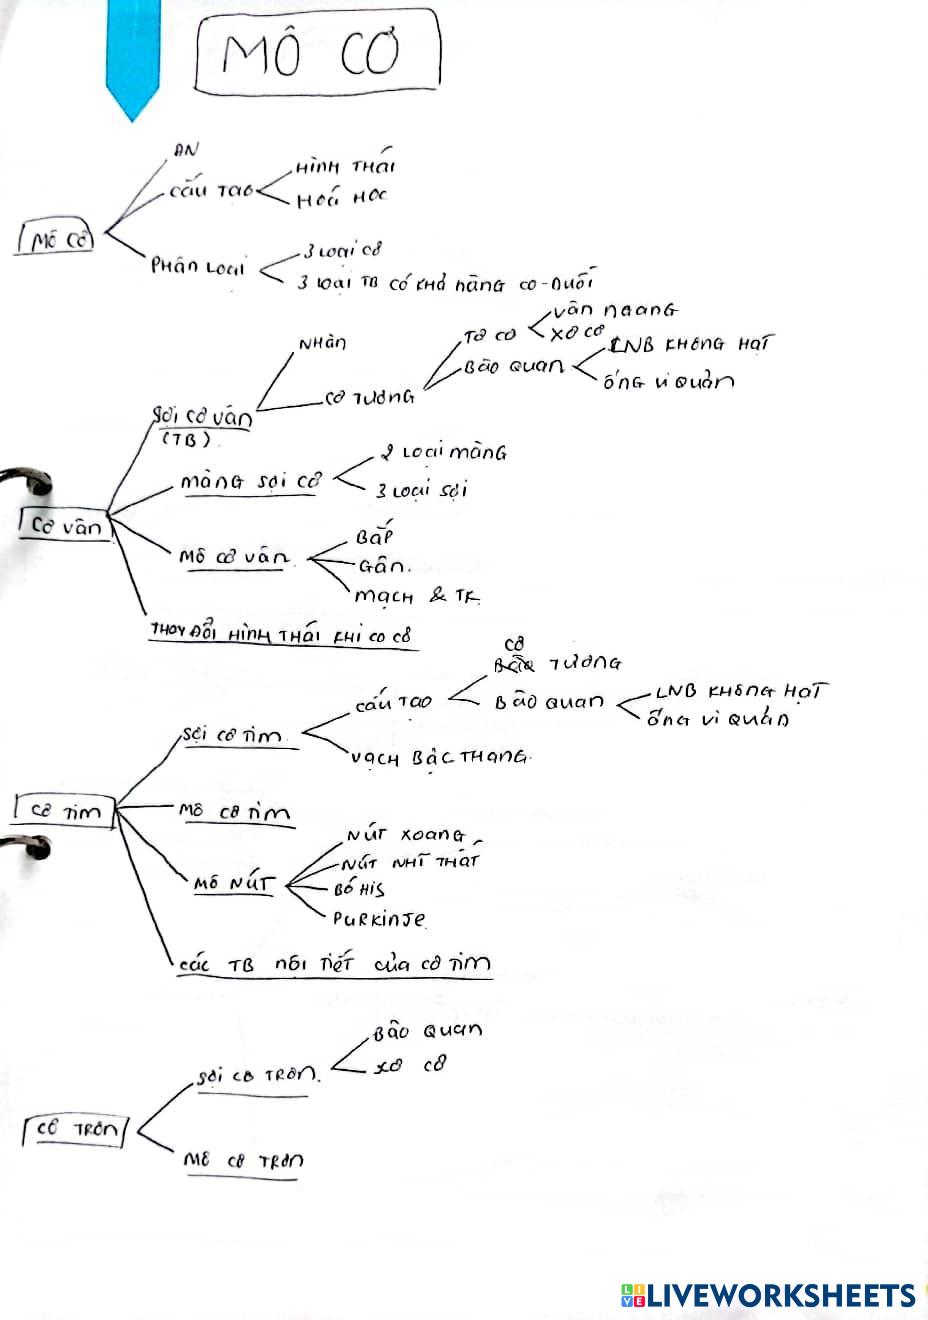 MÔ CƠ
ĐN
CẤU TẠO
HÌNH THÁI
HOÁ HỌC
MÔ CƠ
PHÂN LOẠI
3 LOẠI CƠ
3 LOẠI TB CÓ KHẢ NĂNG CO-DUỖI
NHÂN
TƠ CƠ
VÂN NGANG
XƠ CƠ
BÀO QUAN
LNB KHÔNG HẠT
ỐNG VI QUẢN
CƠ TƯƠNG
SỢI CƠ VÂN
(TB).
MÀNG SỢI CƠ
2 LOẠI MÀNG
3 LOẠI SỢI
CƠ VÂN
MÔ CƠ VÂN.
BẮP
GÂN.
MẠCH & TK
THAY ĐỔI HÌNH THÁI KHI CO CƠ
CƠ TƯƠNG
CẤU TẠO
BÀO QUAN
LNB KHÔNG HẠT
ỐNG VI QUẢN
SỢI CƠ TIM.
VẠCH BẬC THANG.
CƠ TIM
MÔ CƠ TIM
MÔ NÚT
NÚT XOANG
NÚT NHĨ THẤT
BÓ HIS
PURKINJE
CÁC TB NỘI TIẾT CỦA CƠ TIM
SỢI CƠ TRƠN.
BÀO QUAN
XƠ CƠ
CƠ TRƠN
MÔ CƠ TRƠN
LIVEWORKSHEETS